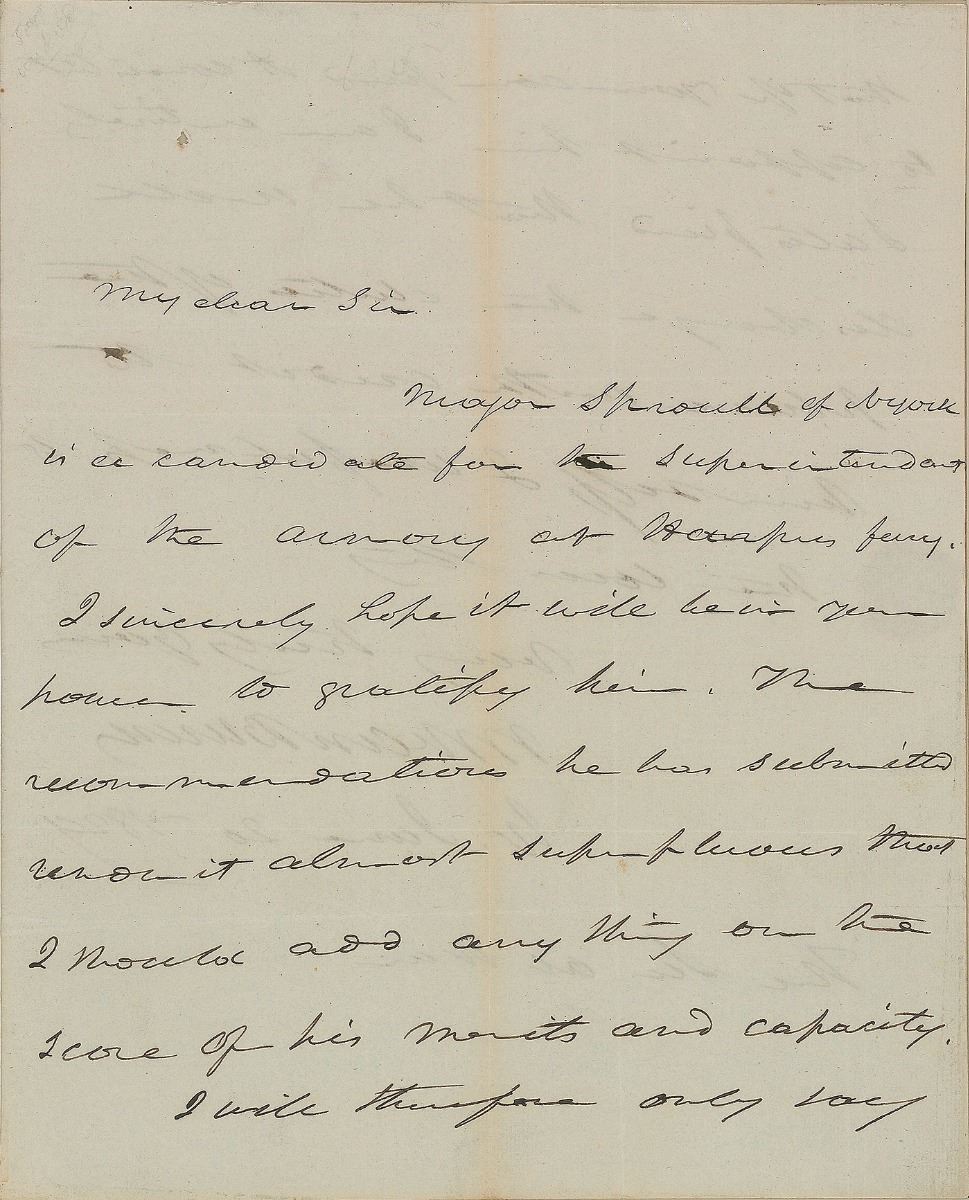 My dear Sir.
Major Sproull of NYork
is a candidate for the Superintendant
of the armory at Harpers ferry.
I sincerely hope it will be in your
power to gratify him. The
recommendations he has submitted
render it almost superfluous that
I should add any thing on the
score of his merits and capacity.
I will therefore only say